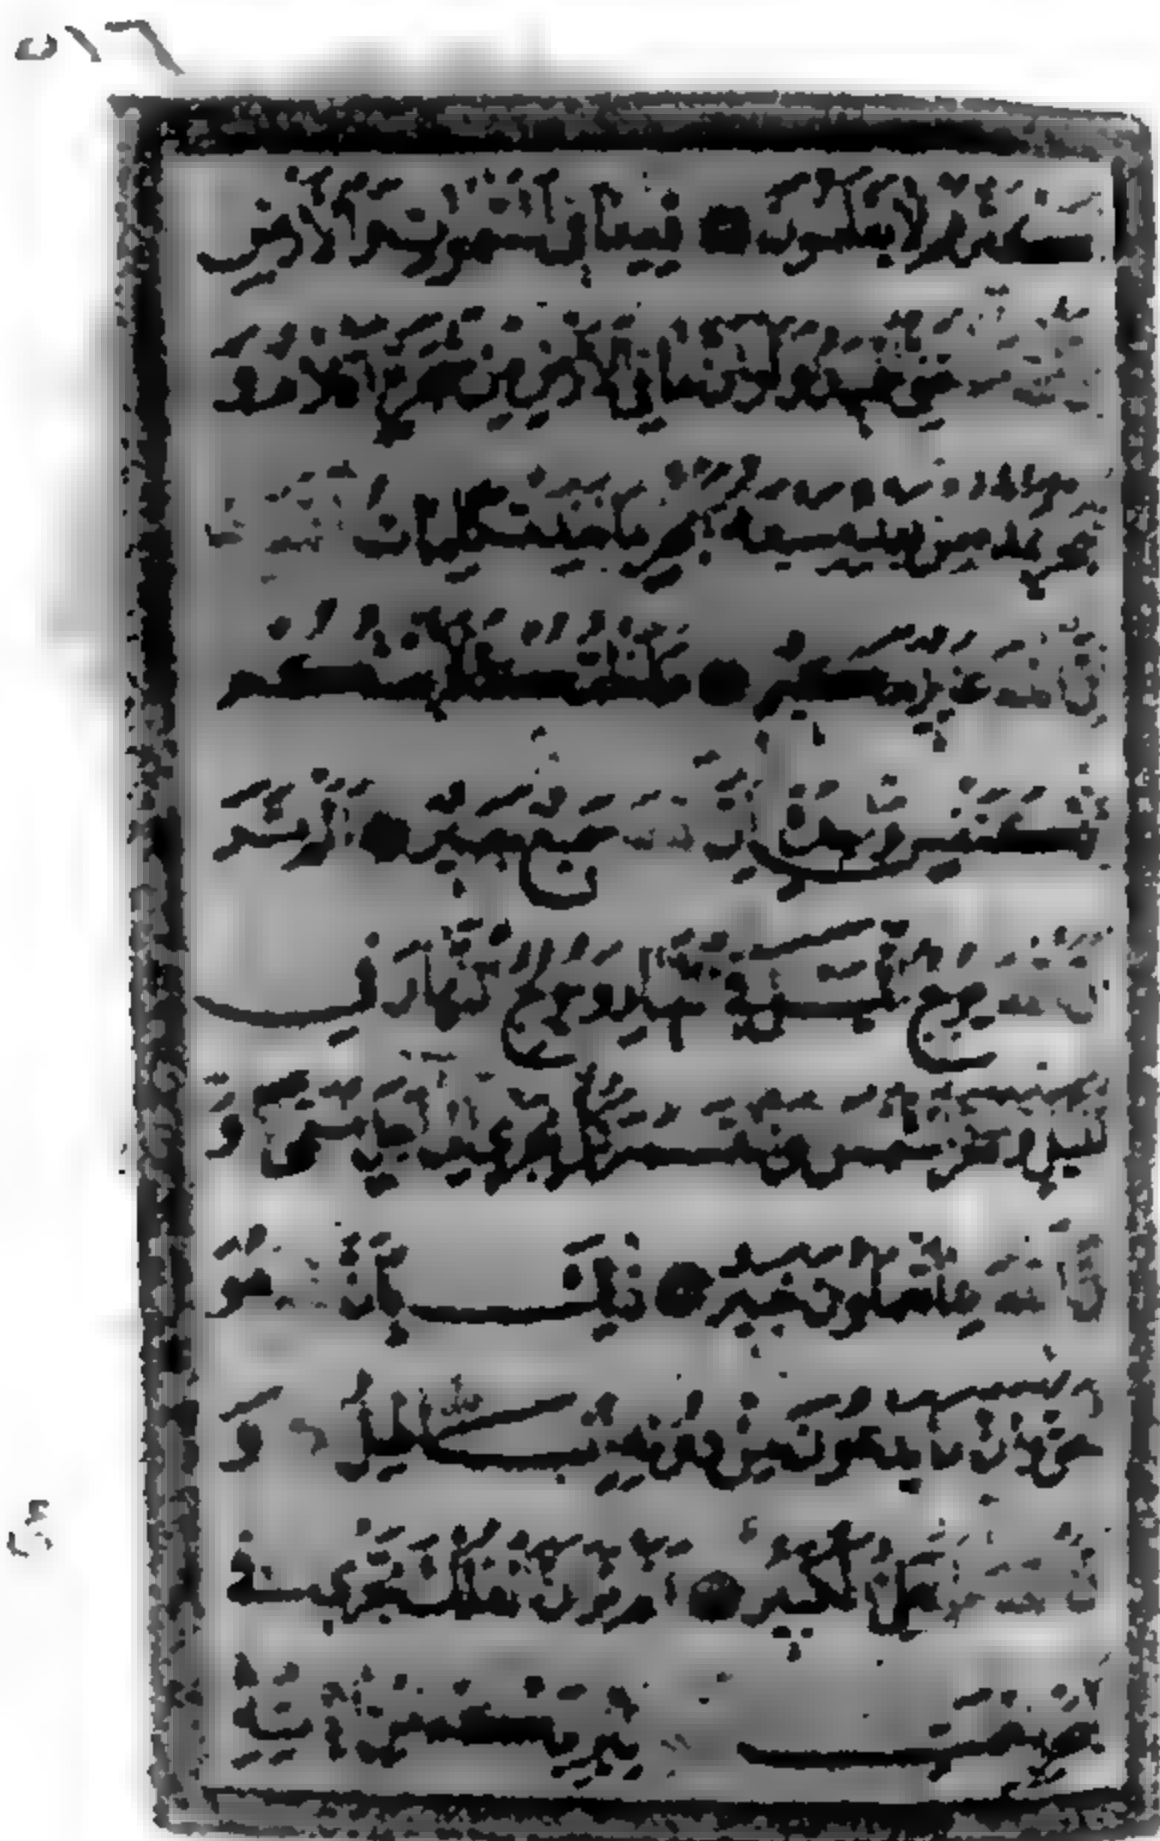 ٥١٦
أَكْثَرُهُمْ لَا يَعْلَمُونَ ۝ لِلَّهِ مَا فِي السَّمٰوٰتِ وَالْأَرْضِ
إِنَّ اللَّهَ هُوَ الْغَنِيُّ الْحَمِيدُ وَلَوْ أَنَّ مَا فِي الْأَرْضِ مِنْ شَجَرَةٍ أَقْلَامٌ وَ
الْبَحْرُ يَمُدُّهُ مِنْ بَعْدِهِ سَبْعَةُ أَبْحُرٍ مَا نَفِدَتْ كَلِمَاتُ اللَّهِ
إِنَّ اللَّهَ عَزِيزٌ حَكِيمٌ ۝ مَا خَلْقُكُمْ وَلَا بَعْثُكُمْ
إِلَّا كَنَفْسٍ وَاحِدَةٍ إِنَّ اللَّهَ سَمِيعٌ بَصِيرٌ ۝ أَلَمْ تَرَ
أَنَّ اللَّهَ يُولِجُ اللَّيْلَ فِي النَّهَارِ وَيُولِجُ النَّهَارَ فِي
اللَّيْلِ وَسَخَّرَ الشَّمْسَ وَالْقَمَرَ كُلٌّ يَجْرِي إِلَى أَجَلٍ مُسَمًّى وَ
أَنَّ اللَّهَ بِمَا تَعْمَلُونَ خَبِيرٌ ۝ ذَلِكَ بِأَنَّ اللَّهَ هُوَ
الْحَقُّ وَأَنَّ مَا يَدْعُونَ مِنْ دُونِهِ الْبَاطِلُ وَ
أَنَّ اللَّهَ هُوَ الْعَلِيُّ الْكَبِيرُ ۝ أَلَمْ تَرَ أَنَّ الْفُلْكَ تَجْرِي فِي
الْبَحْرِ بِنِعْمَتِ اللَّهِ لِيُرِيَكُمْ مِنْ آيَاتِهِ